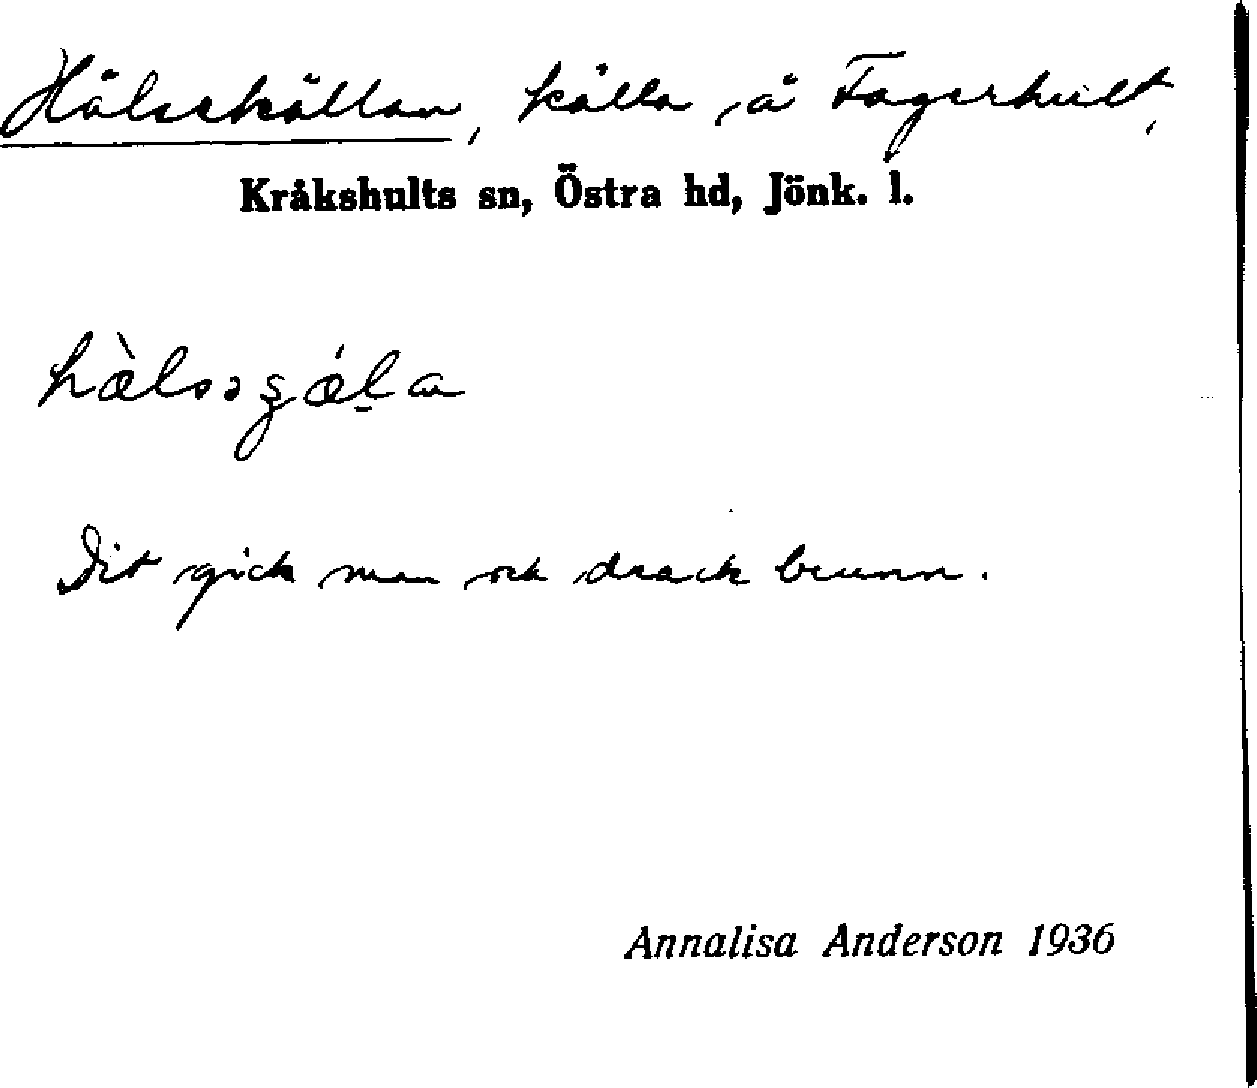 Hälsekällan, källa å Fagerhult,
Kråkshults sn, Östra hd, Jönk. l.
Dit gick man och drack brunn.
Annalisa Anderson 1936